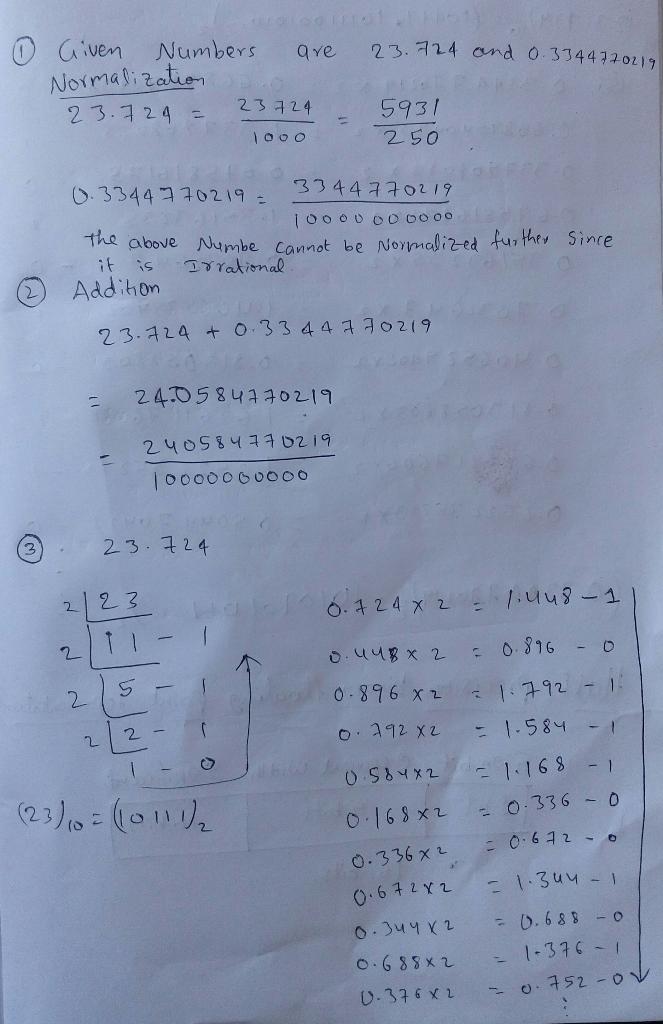 ① Given Numbers are 23.724 and 0.3344770219
Normalization
23.724 = 23724/1000 = 5931/250
0.3344770219 = 3344770219/10000000000
The above Numbe cannot be Normalized further Since
it is Irrational.
② Addition
23.724 + 0.3344770219
= 24.0584770219
= 240584770219/10000000000
③ . 23.724
2|23
2|11 - 1
2|5 - 1
2|2 - 1
1 - 0
(23)10 = (10111)2
0.724 x 2 = 1.448 - 1
0.448 x 2 = 0.896 - 0
0.896 x 2 = 1.792 - 1
0.792 x 2 = 1.584 - 1
0.584 x 2 = 1.168 - 1
0.168 x 2 = 0.336 - 0
0.336 x 2 = 0.672 - 0
0.672 x 2 = 1.344 - 1
0.344 x 2 = 0.688 - 0
0.688 x 2 = 1.376 - 1
0.376 x 2 = 0.752 - 0